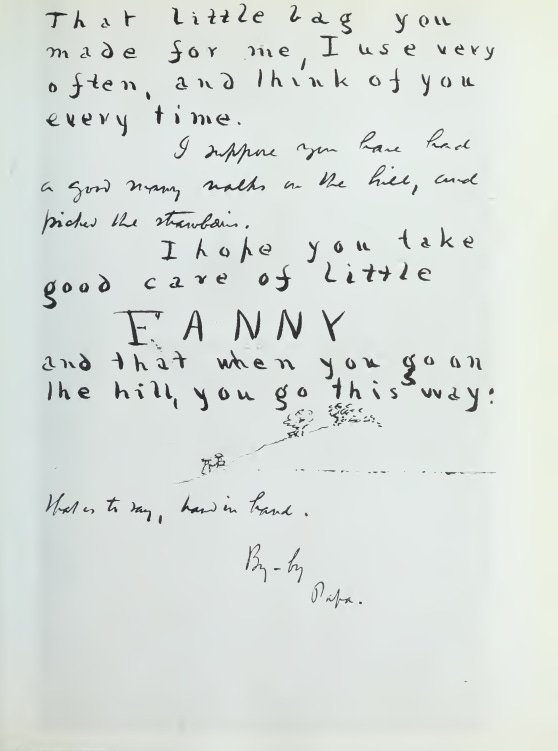 That little bag you
made for me, I use very
often, and think of you
every time.
I suppose you have had
a good many walks on the hill, and
picked the strawberries.
I hope you take
good care of little
FANNY
and that when you go on
the hill, you go this way:
that is to say, hand in hand.
By-by
Papa.